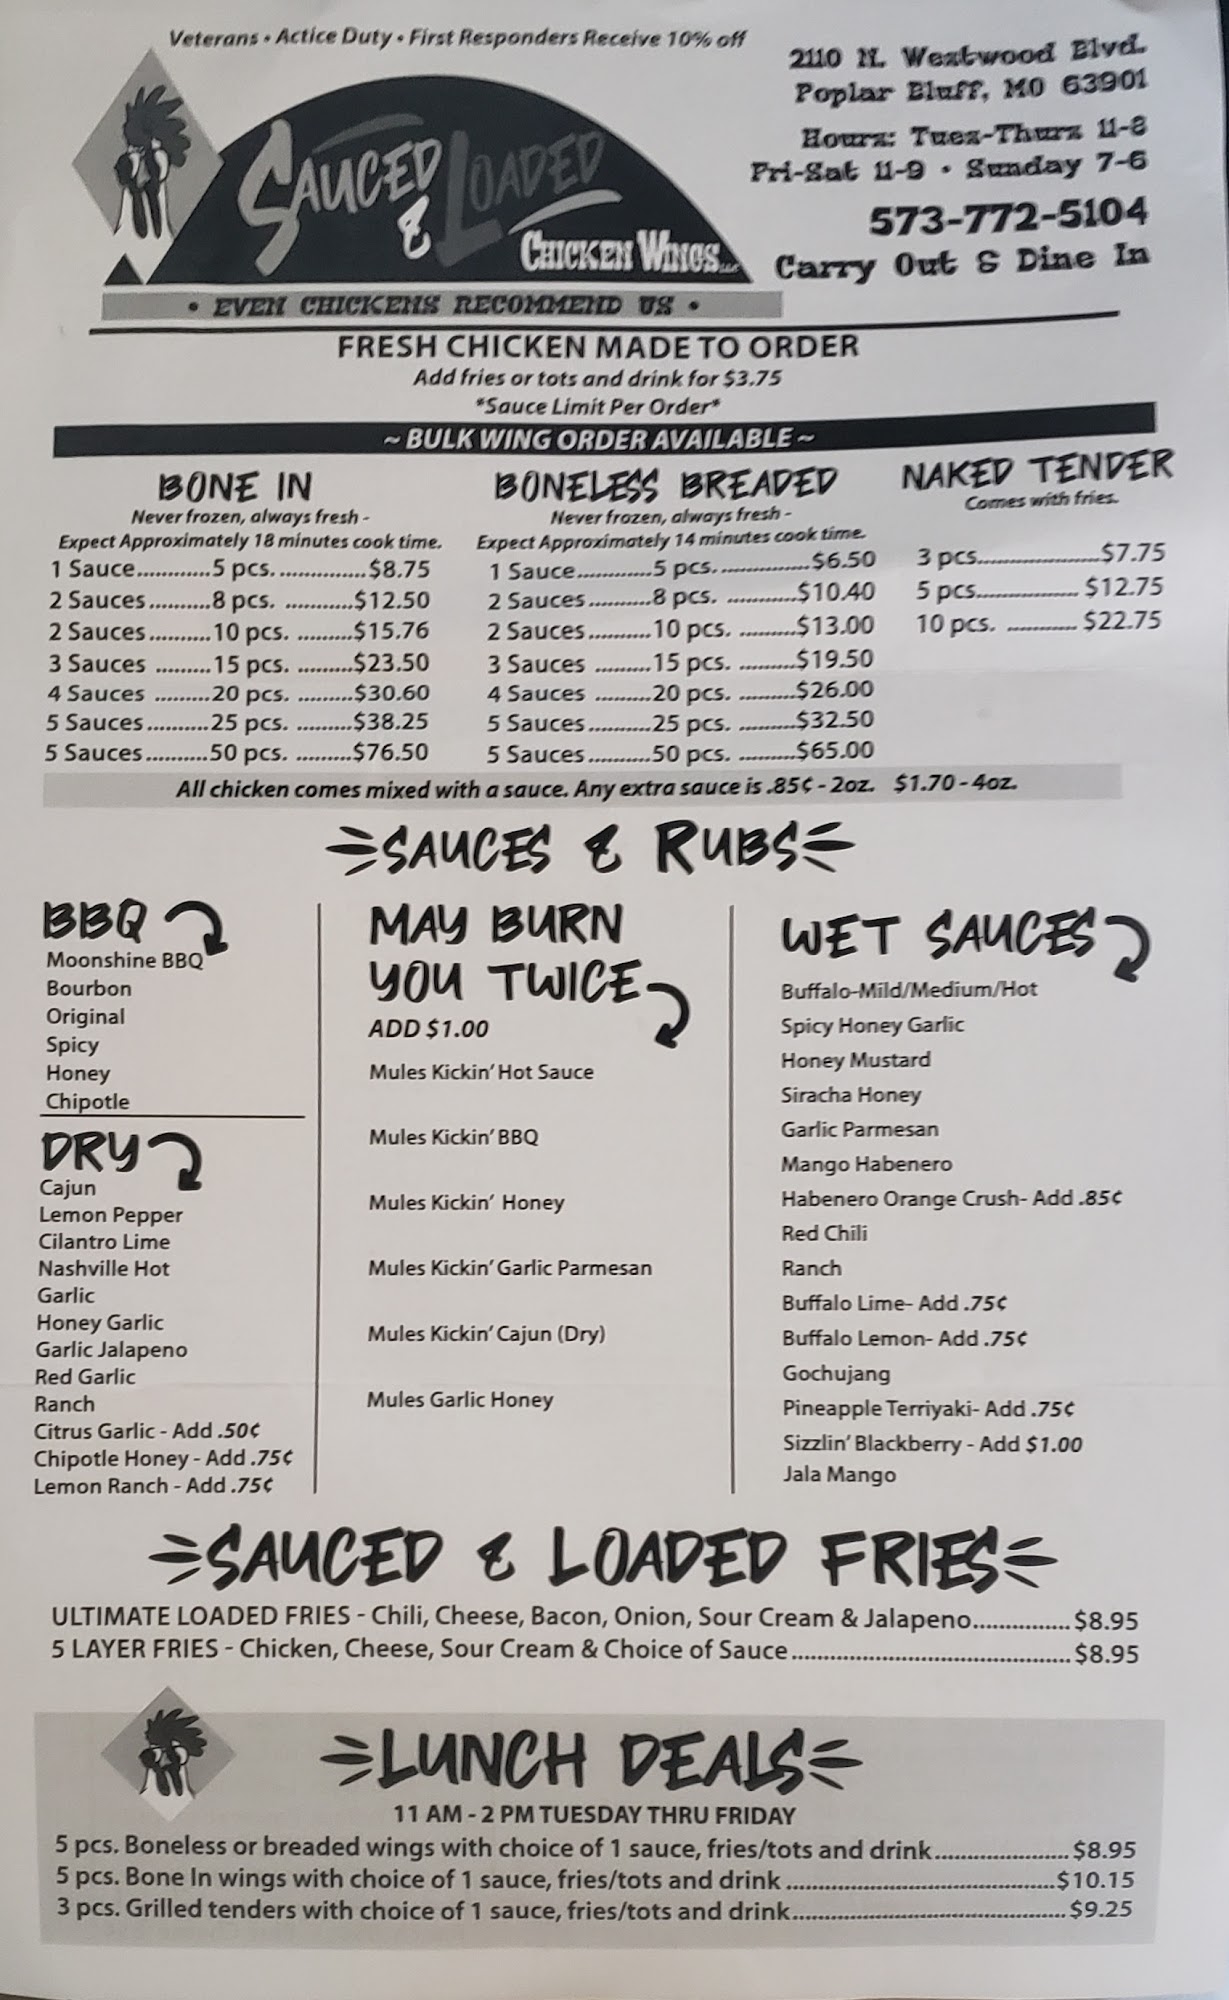 Veterans • Actice Duty • First Responders Receive 10% off
SAUCED & LOADED
CHICKEN WINGS LLC
• EVEN CHICKENS RECOMMEND US •
2110 N. Westwood Blvd.
Poplar Bluff, MO 63901
Hours: Tues-Thurs 11-8
Fri-Sat 11-9 • Sunday 7-6
573-772-5104
Carry Out & Dine In
FRESH CHICKEN MADE TO ORDER
Add fries or tots and drink for $3.75
*Sauce Limit Per Order*
~ BULK WING ORDER AVAILABLE ~
BONE IN
Never frozen, always fresh -
Expect Approximately 18 minutes cook time.
1 Sauce............5 pcs. ..............$8.75
2 Sauces..........8 pcs. ...........$12.50
2 Sauces..........10 pcs. .........$15.76
3 Sauces .........15 pcs. .........$23.50
4 Sauces .........20 pcs. .........$30.60
5 Sauces..........25 pcs. .........$38.25
5 Sauces..........50 pcs. .........$76.50
BONELESS BREADED
Never frozen, always fresh -
Expect Approximately 14 minutes cook time.
1 Sauce............5 pcs. ..............$6.50
2 Sauces..........8 pcs. ...........$10.40
2 Sauces..........10 pcs. .........$13.00
3 Sauces .........15 pcs. .........$19.50
4 Sauces .........20 pcs. .........$26.00
5 Sauces..........25 pcs. .........$32.50
5 Sauces..........50 pcs. .........$65.00
NAKED TENDER
Comes with fries.
3 pcs....................$7.75
5 pcs................. $12.75
10 pcs. ............ $22.75
All chicken comes mixed with a sauce. Any extra sauce is .85¢ - 2oz. $1.70 - 4oz.
SAUCES & RUBS
BBQ
Moonshine BBQ
Bourbon
Original
Spicy
Honey
Chipotle
DRY
Cajun
Lemon Pepper
Cilantro Lime
Nashville Hot
Garlic
Honey Garlic
Garlic Jalapeno
Red Garlic
Ranch
Citrus Garlic - Add .50¢
Chipotle Honey - Add .75¢
Lemon Ranch - Add .75¢
MAY BURN
YOU TWICE
ADD $1.00
Mules Kickin' Hot Sauce
Mules Kickin' BBQ
Mules Kickin' Honey
Mules Kickin' Garlic Parmesan
Mules Kickin' Cajun (Dry)
Mules Garlic Honey
WET SAUCES
Buffalo-Mild/Medium/Hot
Spicy Honey Garlic
Honey Mustard
Siracha Honey
Garlic Parmesan
Mango Habenero
Habenero Orange Crush- Add .85¢
Red Chili
Ranch
Buffalo Lime- Add .75¢
Buffalo Lemon- Add .75¢
Gochujang
Pineapple Terriyaki- Add .75¢
Sizzlin' Blackberry - Add $1.00
Jala Mango
SAUCED & LOADED FRIES
ULTIMATE LOADED FRIES - Chili, Cheese, Bacon, Onion, Sour Cream & Jalapeno................ $8.95
5 LAYER FRIES - Chicken, Cheese, Sour Cream & Choice of Sauce.............................................. $8.95
LUNCH DEALS
11 AM - 2 PM TUESDAY THRU FRIDAY
5 pcs. Boneless or breaded wings with choice of 1 sauce, fries/tots and drink......................$8.95
5 pcs. Bone In wings with choice of 1 sauce, fries/tots and drink ............................................$10.15
3 pcs. Grilled tenders with choice of 1 sauce, fries/tots and drink............................................. $9.25